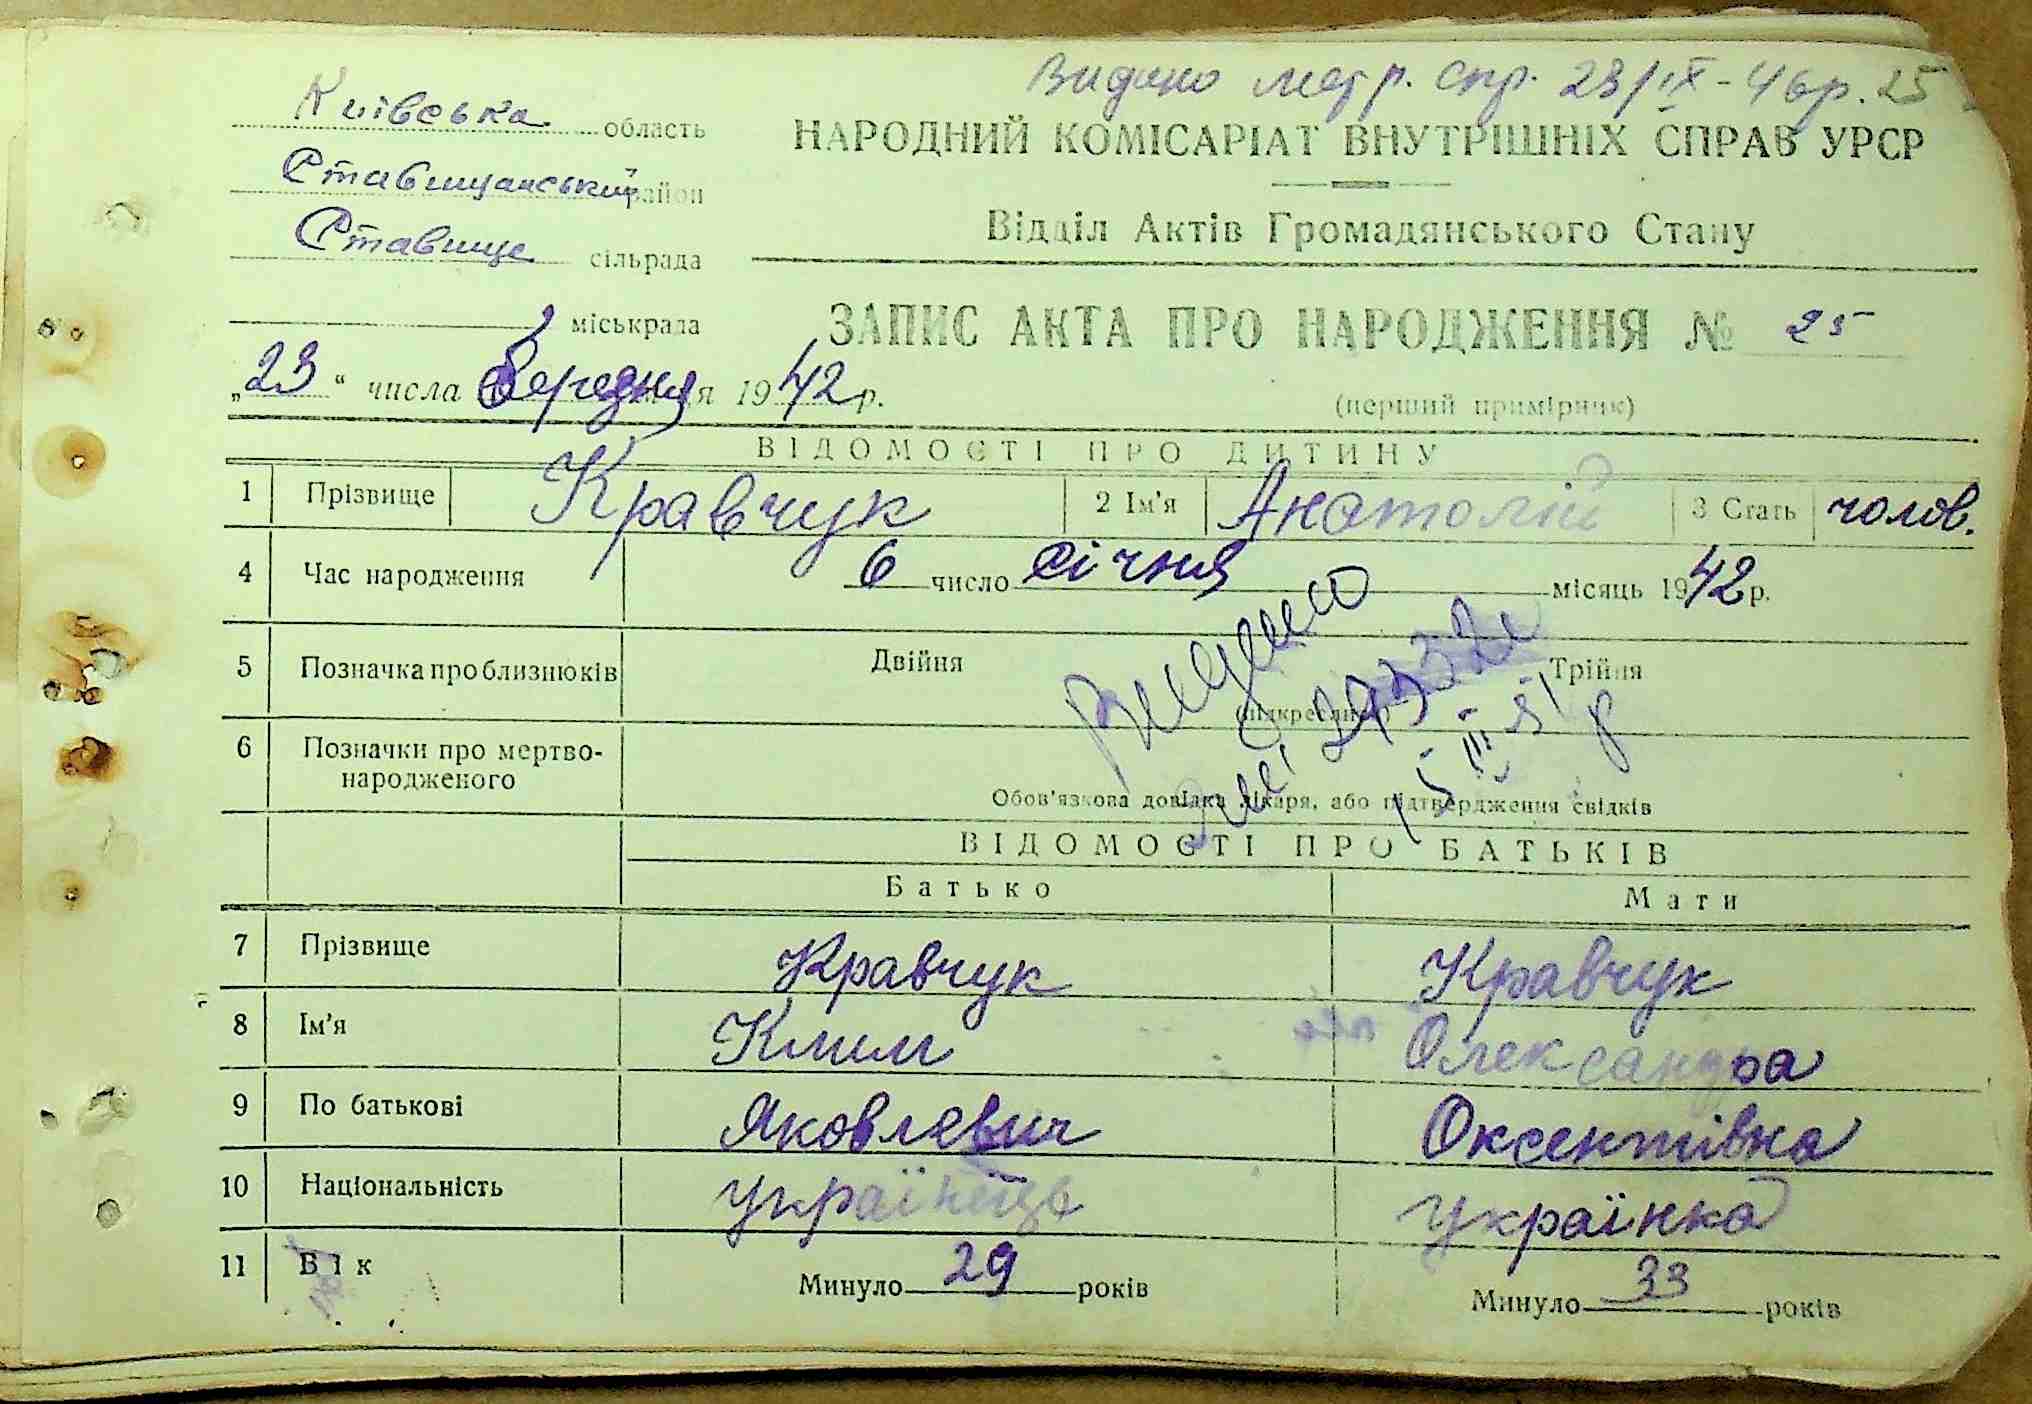 Видано метр. спр. 23/IX-46р. 25
Київська область
Ставищанський район
Ставище сільрада
міськрада
НАРОДНИЙ КОМІСАРІАТ ВНУТРІШНІХ СПРАВ УРСР
Відділ Актів Громадянського Стану
ЗАПИС АКТА ПРО НАРОДЖЕННЯ № 25
(перший примірник)
„23“ числа березня 1942 р.
ВІДОМОСТІ ПРО ДИТИНУ
1 Прізвище Кравчук 2 Ім'я Анатолій 3 Стать чолов.
4 Час народження 6 число січня місяць 1942 р.
5 Позначка про близнюків Двійня Трійня
(підкреслити)
Видано
6 Позначки про мертво-
народженого
Обов'язкова довідка лікаря, або підтвердження свідків
ВІДОМОСТІ ПРО БАТЬКІВ
Батько Мати
7 Прізвище Кравчук Кравчук
8 Ім'я Клим Олександра
9 По батькові Яковлевич Оксентівна
10 Національність українець українка
11 Вік Минуло 29 років Минуло 33 років